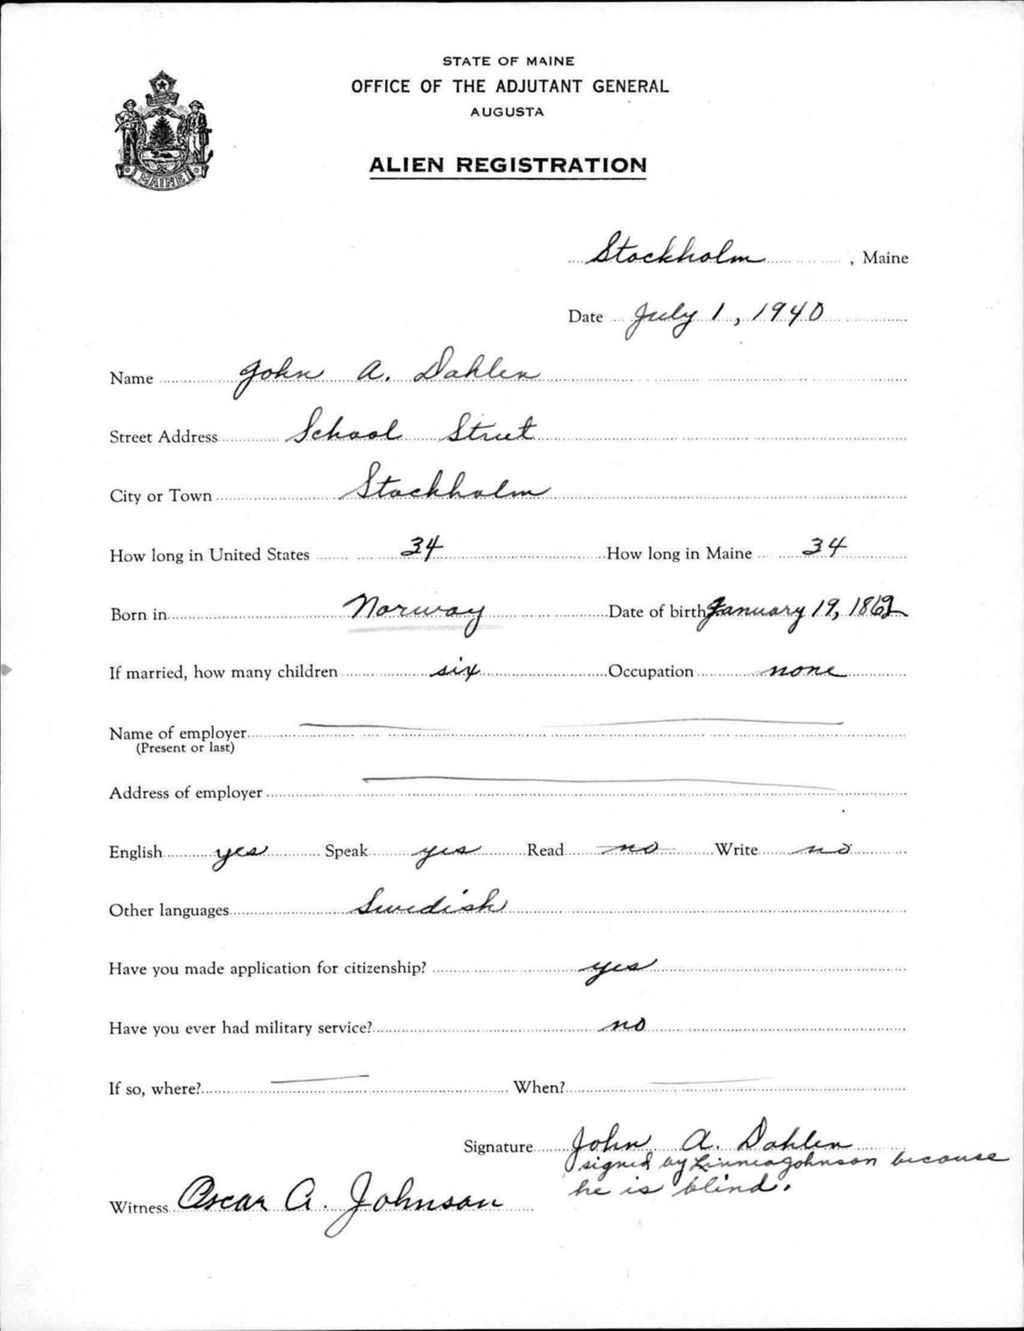 STATE OF MAINE
OFFICE OF THE ADJUTANT GENERAL
AUGUSTA
ALIEN REGISTRATION
MAINE
Stockholm, Maine
Date July 1, 1940
Name John A. Dahlen
Street Address School Street
City or Town Stockholm
How long in United States 34 How long in Maine 34
Born in Norway Date of birth January 19,
If married, how many children six Occupation none
Name of employer
(Present or last)
Address of employer
English yes Speak yes Read no Write no
Other languages Swedish
Have you made application for citizenship? yes
Have you ever had military service? no
If so, where? When?
Signature John A. Dahlen
signed by Linnea Johnson because
he is blind.
Witness Oscar A. Johnson